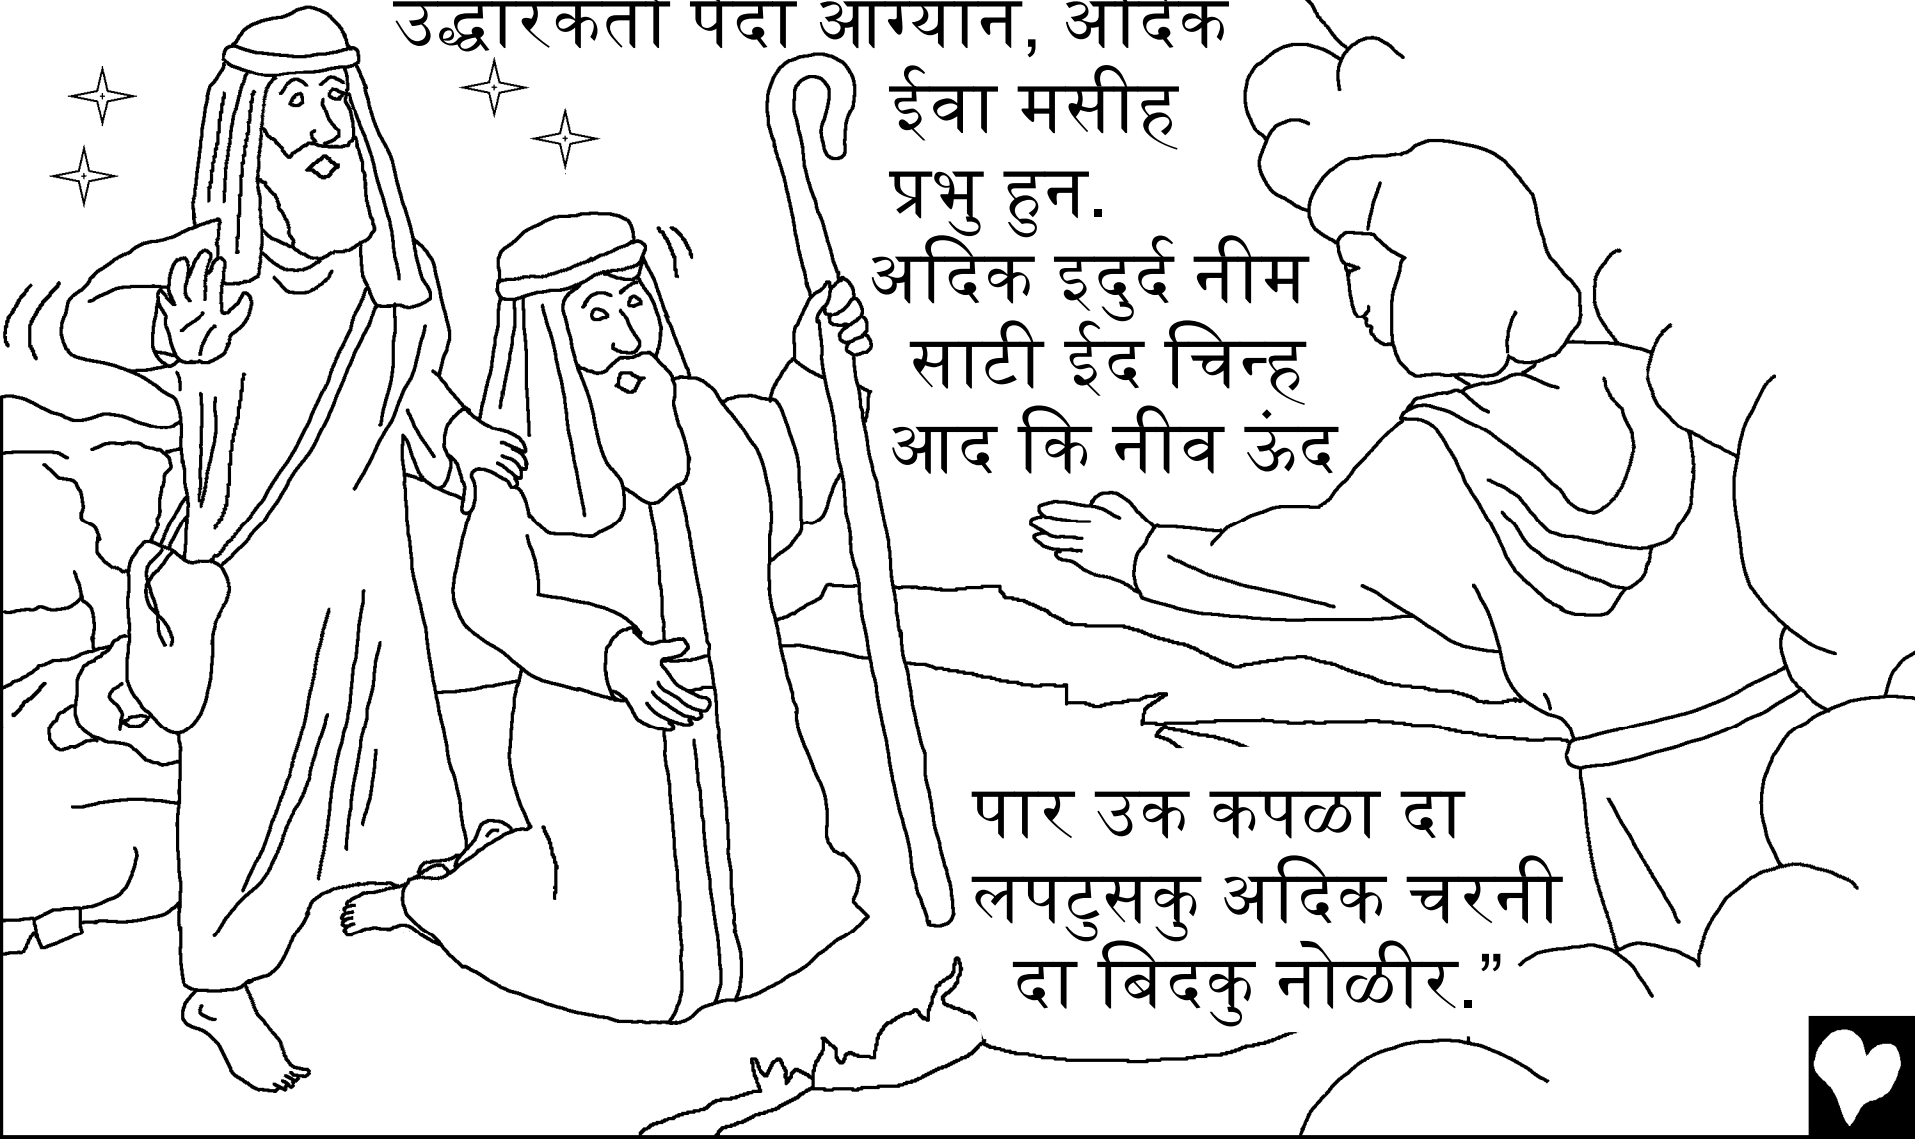 उद्धारकर्ता पैदा आग्यान, अदिक
ईवा मसीह
प्रभु हुन.
अदिक इदुर्द नीम
साटी ईद चिन्ह
आद कि नीव ऊंद
पार उक कपळा दा
लपटुसकु अदिक चरनी
दा बिदकु नोळीर.”